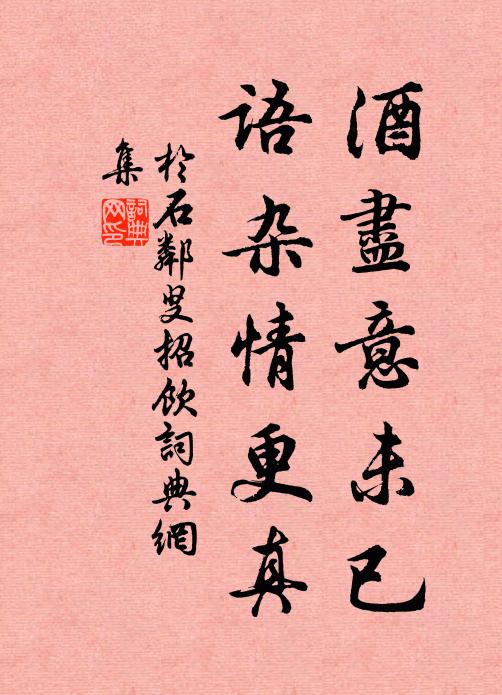 酒盡意未已
語杂情更真
於石鄰叟招飲詞典網
集
詞典
网印